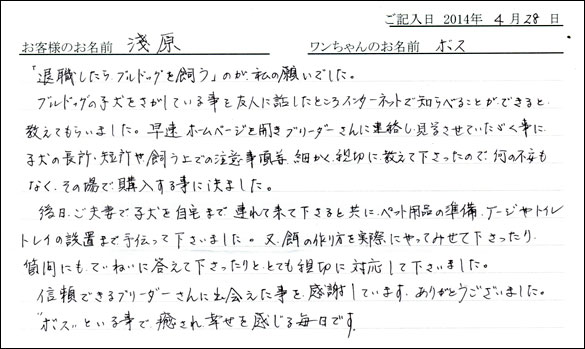 ご記入日 2014年 4月28日
お客様のお名前 淺原 ワンちゃんのお名前 ボス
「退職したら ブルドッグを飼う」のが、私の願いでした。
ブルドッグの子犬をさがしている事を友人に話したところインターネットで知らべることができると
教えてもらいました。早速 ホームページを開きブリーダーさんに連絡し見学させていただく事に
子犬の長所・短所や飼う上での注意事項等、細かく、親切に教えて下さったので 何の不安も
なく、その場で購入する事に決ました。
後日、ご夫妻で子犬を自宅まで連れて来て下さると共に、ペット用品の準備、ゲージやトイレ
トレイの設置まで手伝って下さいました。又、餌の作り方を実際にやってみせて下さったり、
質問にも、ていねいに答えて下さったりと、とても親切に対応して下さいました。
信頼できるブリーダーさんに出会えた事を、感謝しています。ありがとうございました。
"ボス"といる事で、癒され幸せを感じる毎日です。